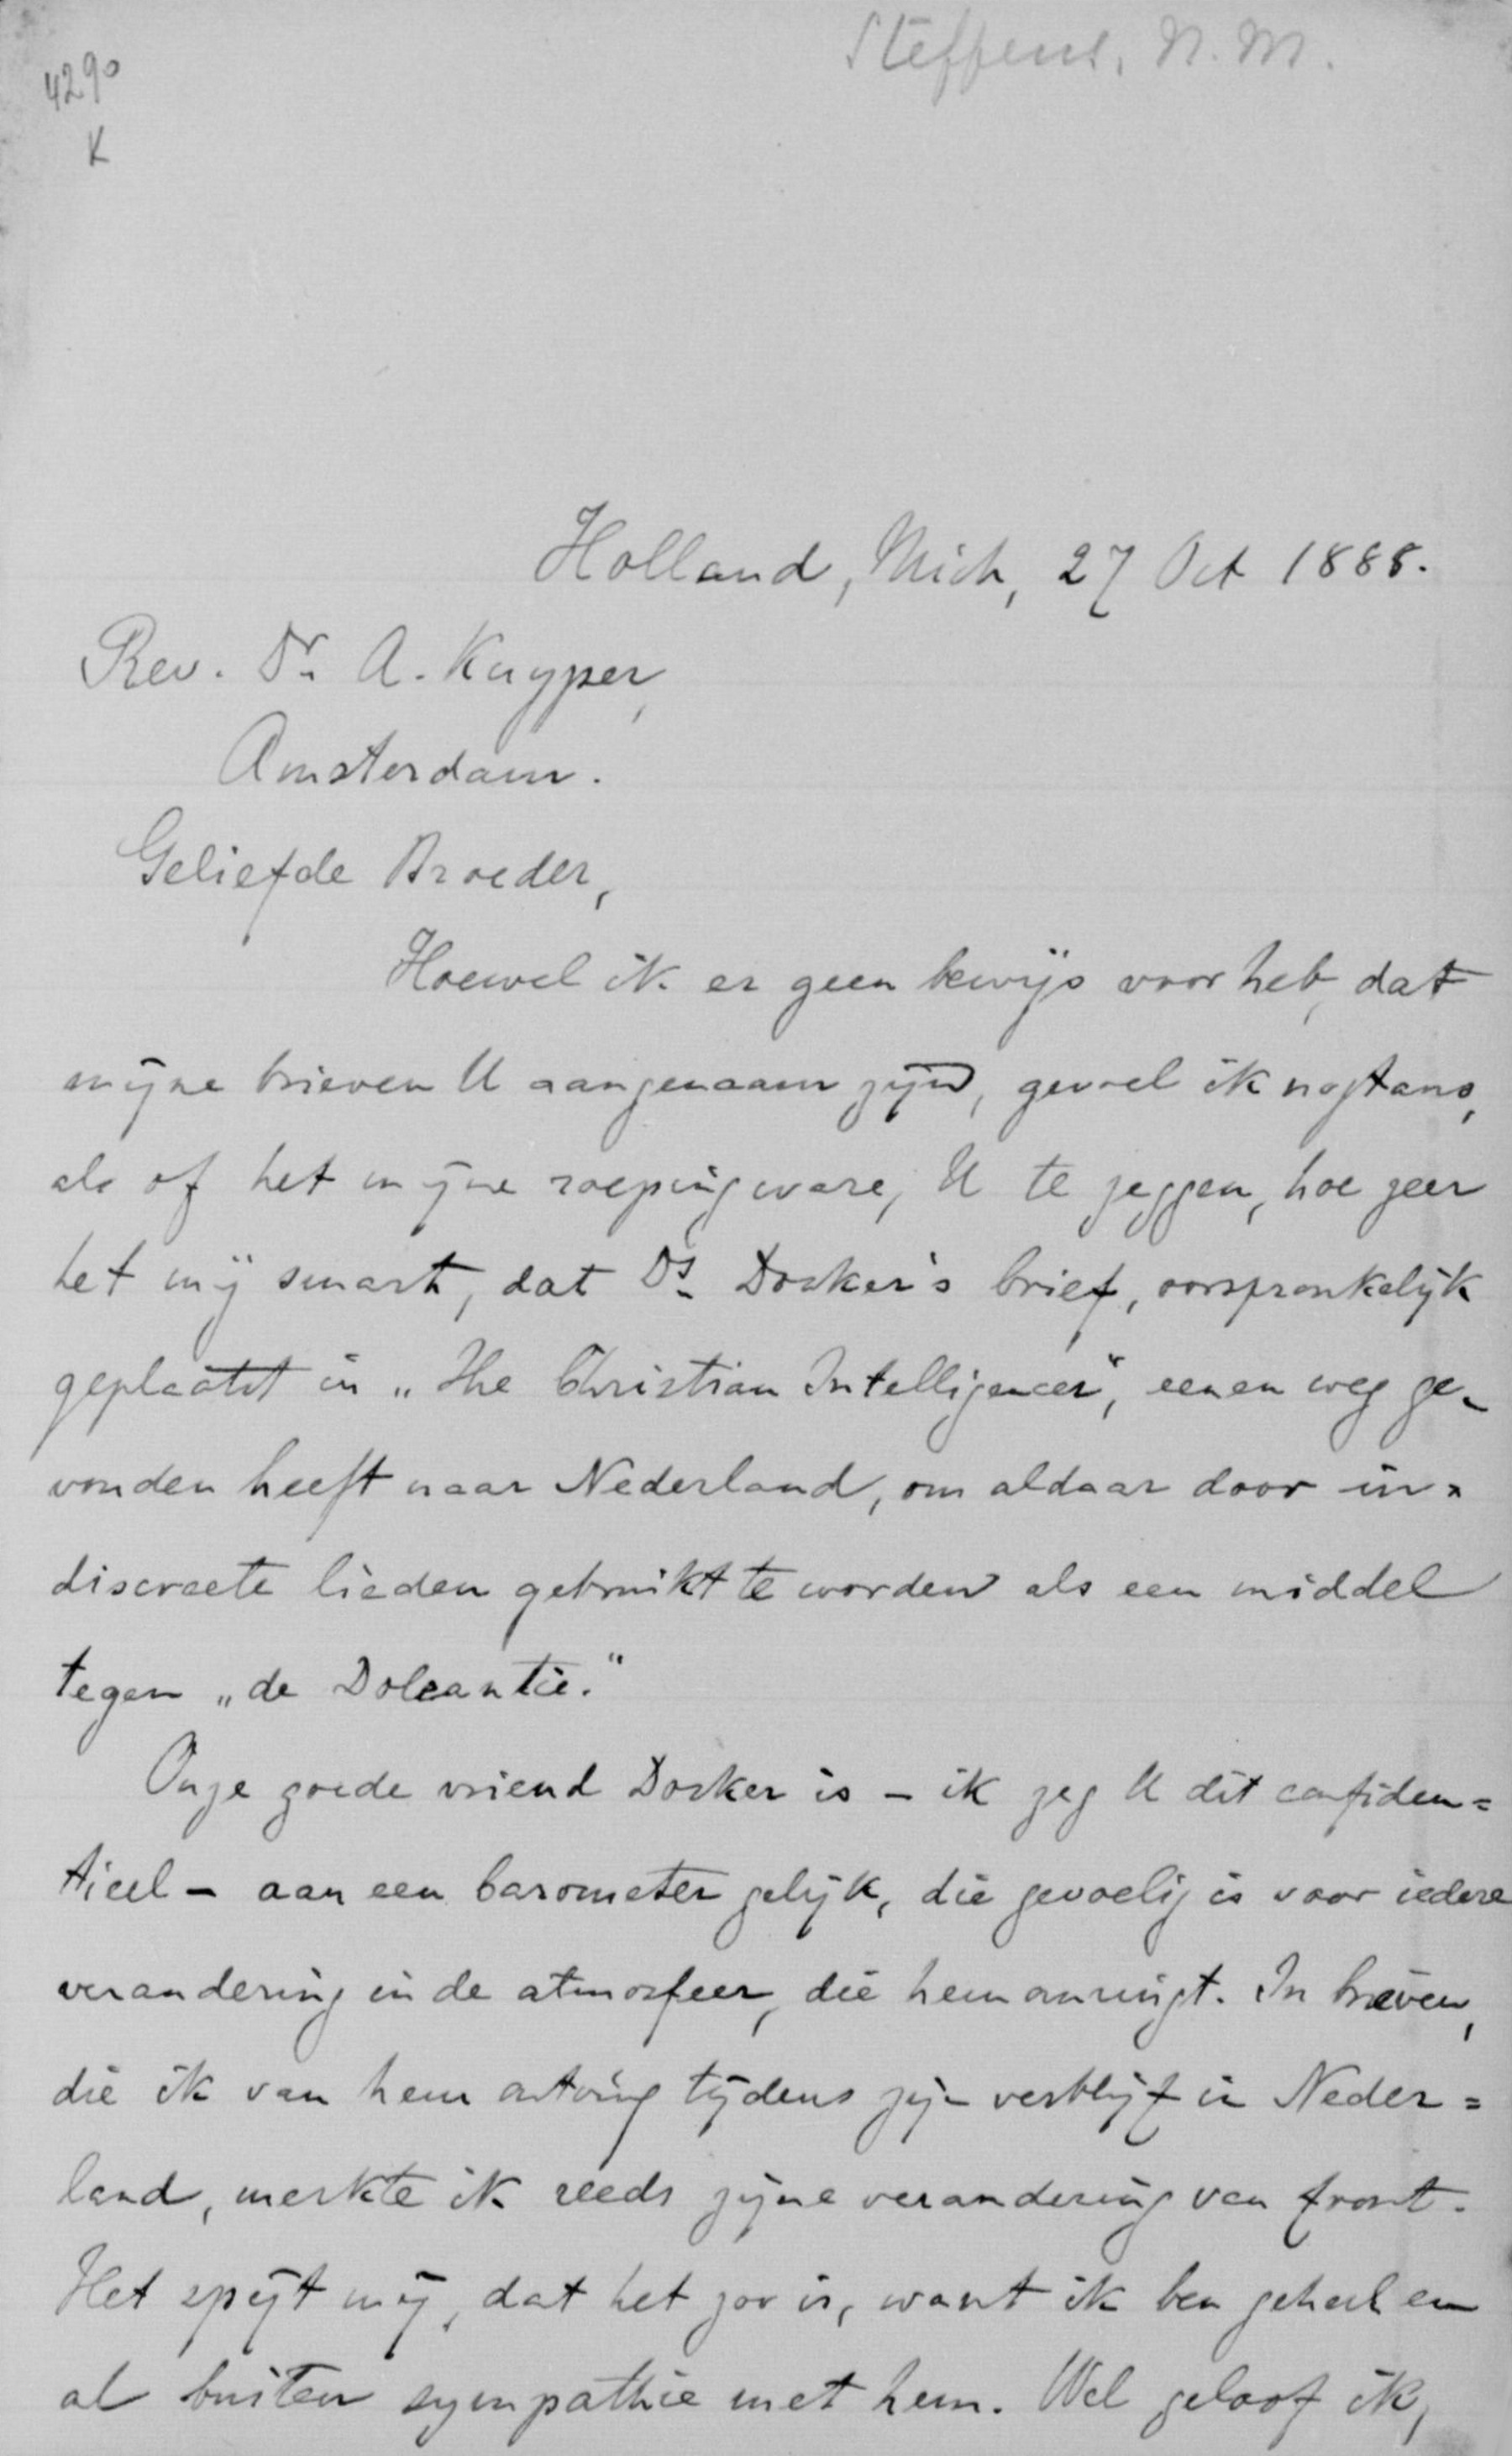 Steffens, N. M.
4290
K
Holland, Mich, 27 Oct 1888.
Rev. Dr. A. Kuyper,
Amsterdam.
Geliefde Broeder,
Hoewel ik er geen bewijs voor heb, dat
mijne brieven U aangenaam zijn, gevoel ik nogtans,
als of het mijne roeping ware, U te zeggen, hoe zeer
het mij smart, dat Ds. Dosker's brief, oorspronkelijk
geplaatst in „The Christian Intelligencer", eenen weg ge-
vonden heeft naar Nederland, om aldaar door in=
discreete lieden gebruikt te worden als een middel
tegen „de Doleantie."
Onze goede vriend Dosker is – ik zeg U dit confiden=
tieel – aan een barometer gelijk, die gevoelig is voor iedere
verandering in de atmosfeer, die hem omringt. In brieven,
die ik van hem ontving tijdens zijn verblijf in Neder=
land, merkte ik reeds zijne verandering van front.
Het spijt mij, dat het zoo is, want ik ben geheel en
al buiten sympathie met hem. Wel geloof ik,